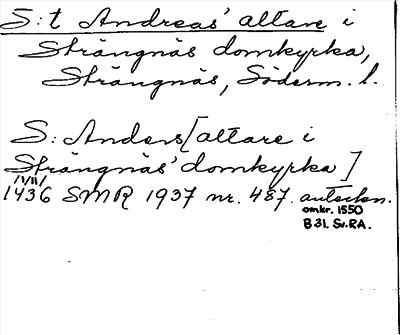 S:t Andreas' altare i
Strängnäs domkyrka,
Strängnäs, Söderm. l.
S: Anders [altare i
Strängnäs' domkyrka]
/VIII/
1436 SMR 1937 nr. 487. anteckn.
omkr. 1550
B 31. Sv.RA.